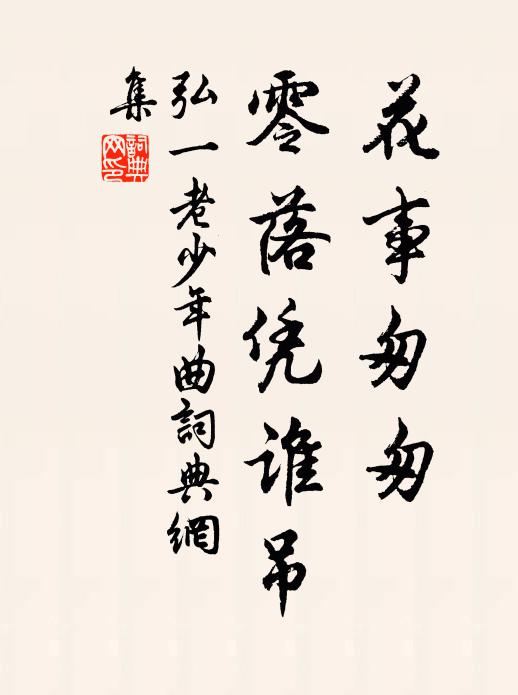 花事匆匆
零落凭谁吊
弘一老少年曲詞典網
集
詞典網印